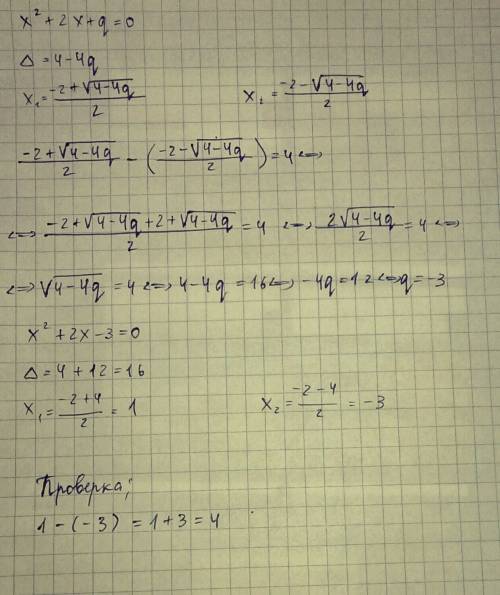 x² + 2x + q = 0
Δ = 4 - 4q
x₁ = (-2 + √(4 - 4q))/2 x₂ = (-2 - √(4 - 4q))/2
(-2 + √(4 - 4q))/2 - ((-2 - √(4 - 4q))/2) = 4 ⇔
⇔ (-2 + √(4 - 4q) + 2 + √(4 - 4q))/2 = 4 ⇔ 2√(4 - 4q)/2 = 4 ⇔
⇔ √(4 - 4q) = 4 ⇔ 4 - 4q = 16 ⇔ -4q = 12 ⇔ q = -3
x² + 2x - 3 = 0
Δ = 4 + 12 = 16
x₁ = (-2 + 4)/2 = 1 x₂ = (-2 - 4)/2 = -3
Проверка;
1 - (-3) = 1 + 3 = 4